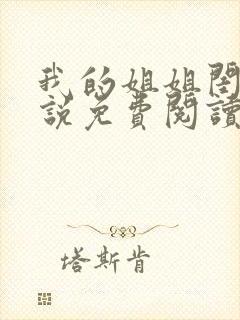 我的姐姐閨
說免費閱讀
塔斯肯